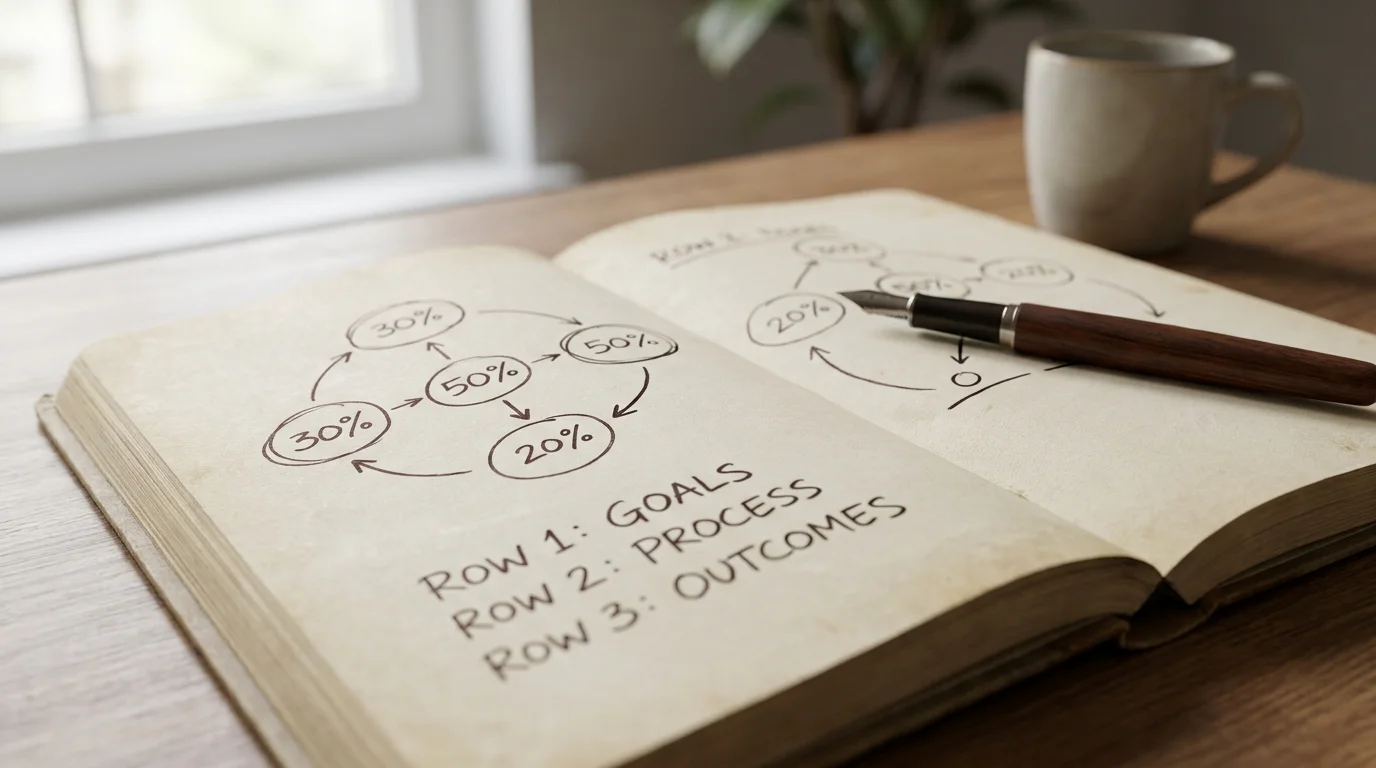 30%
50%
50%
30%
20%
ROW 1: GOALS
ROW 2: PROCESS
ROW 3: OUTCOMES
ROW
20%